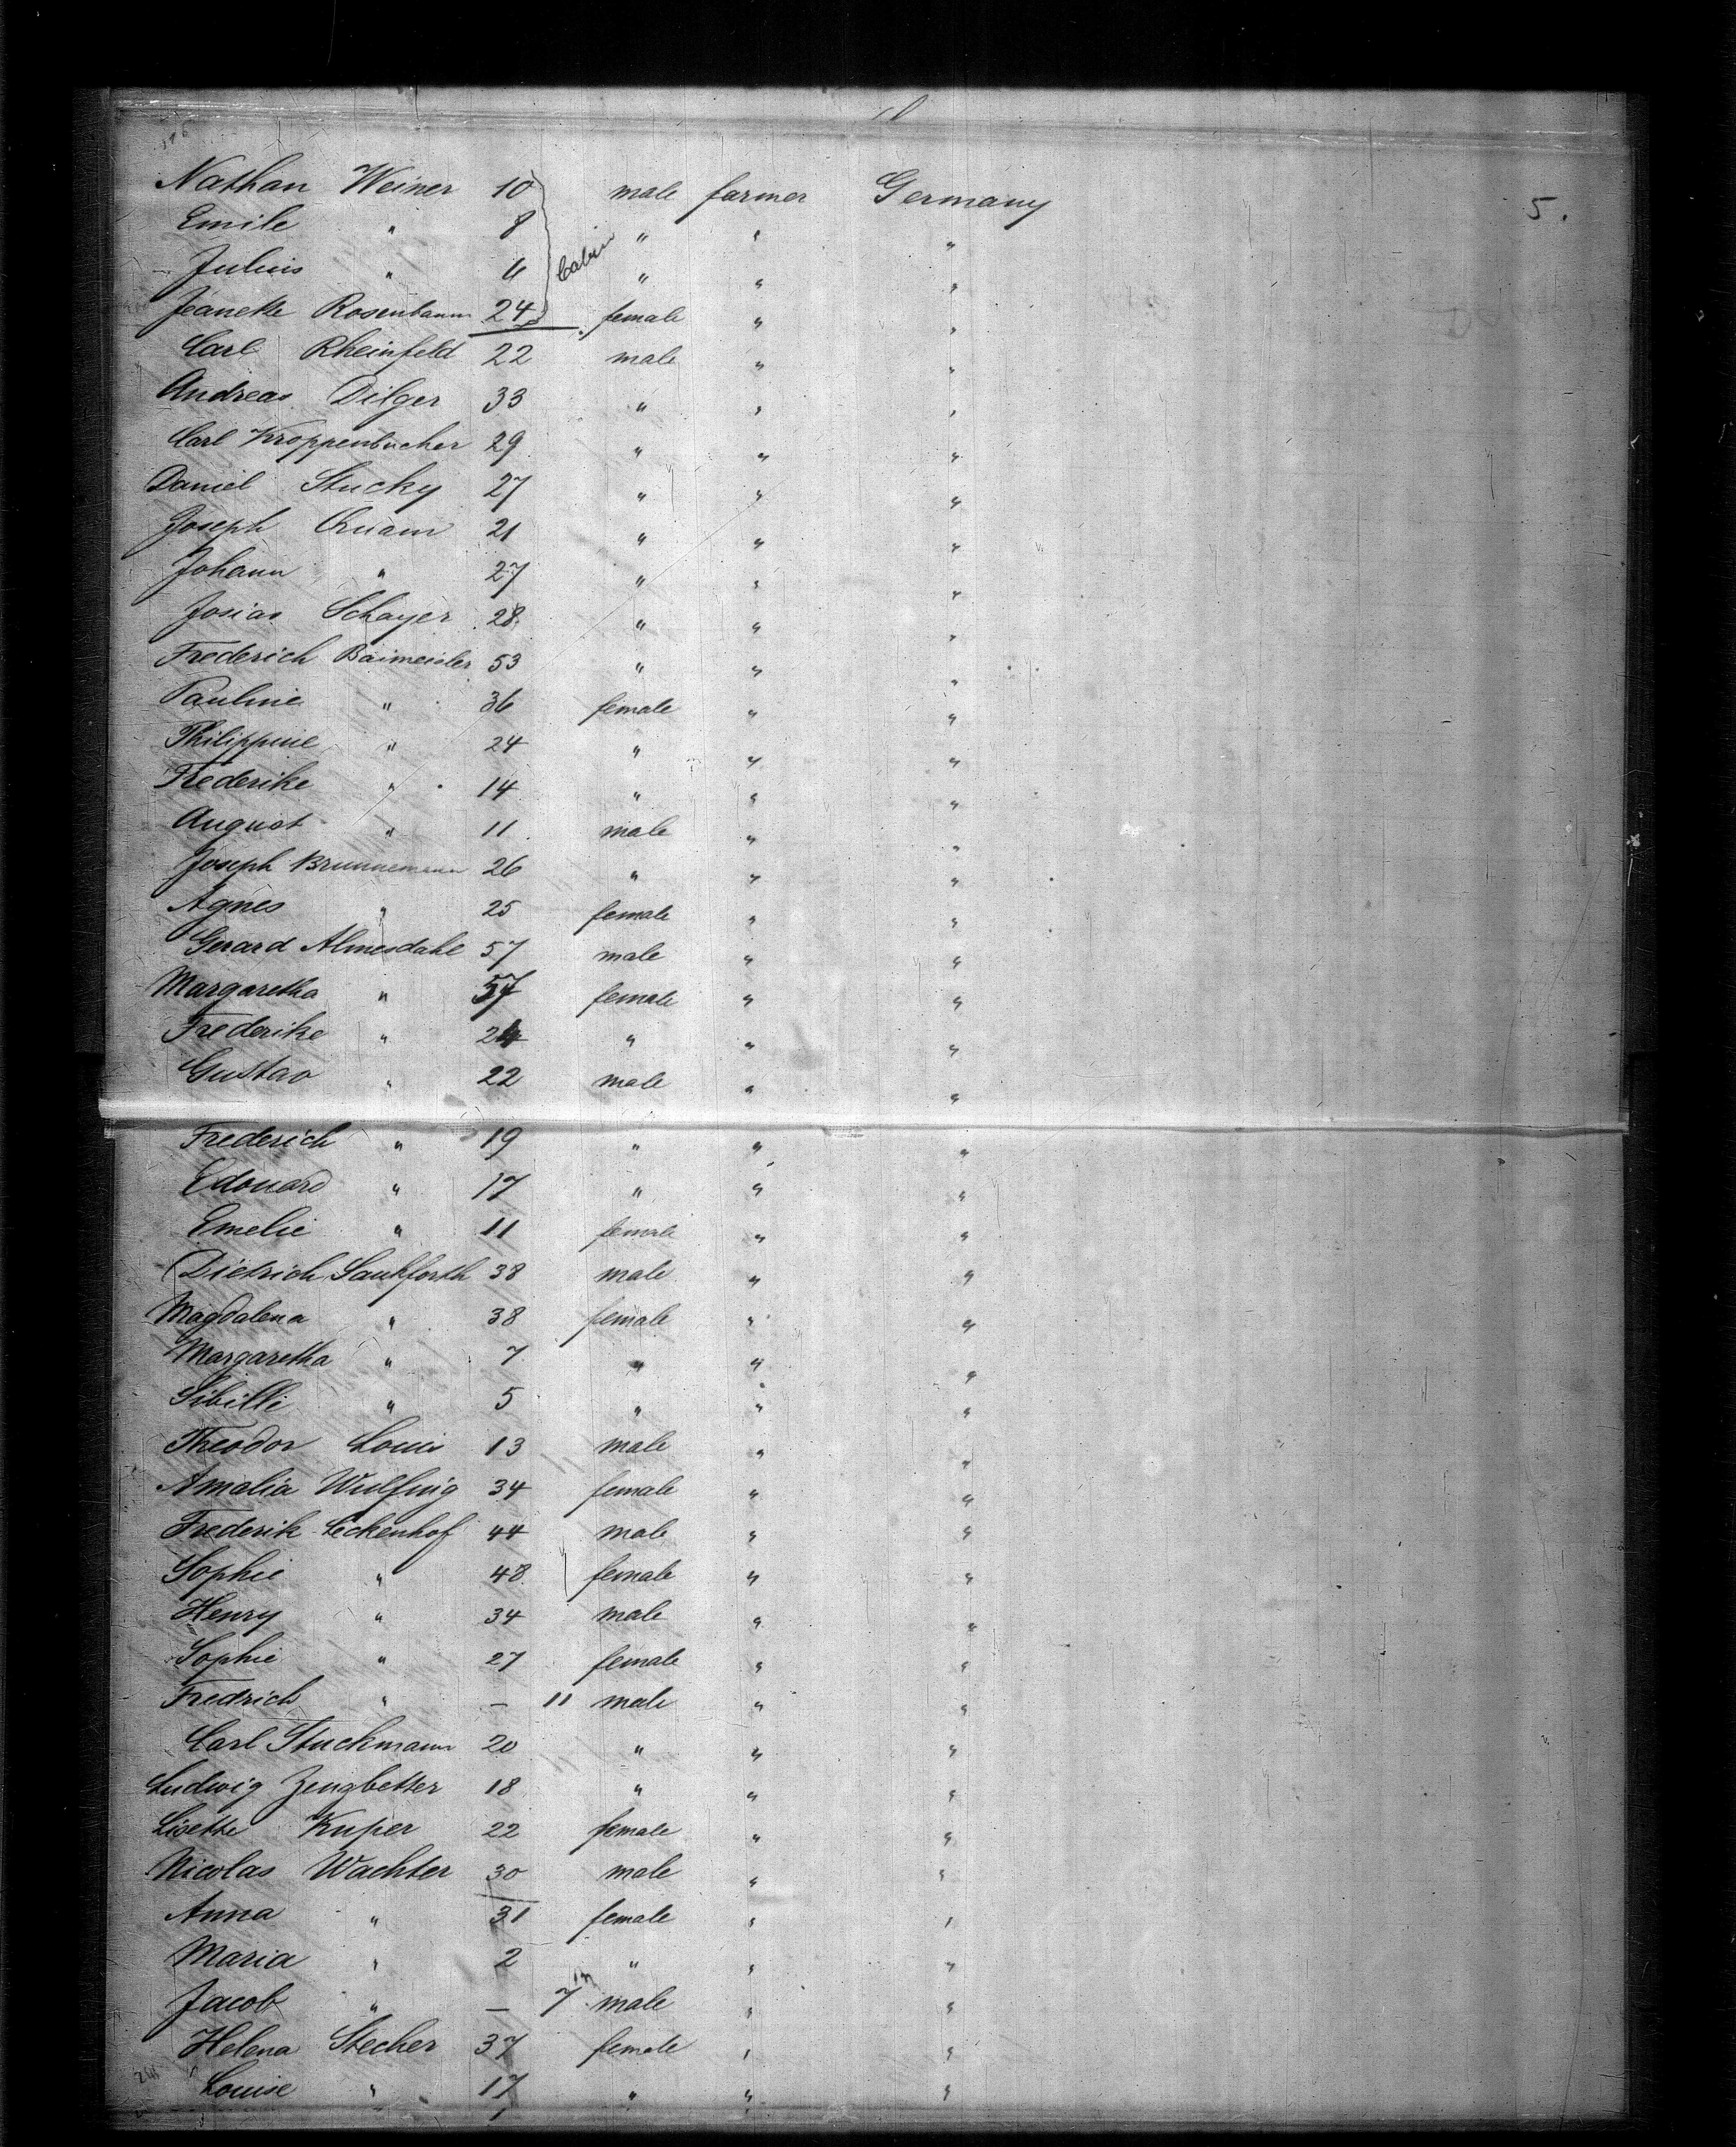 Nathan Weiner 10 male farmer Germany 5.
Emile " 8 " " "
Cabin
Julius " 4 " " "
Jeanette Rosenbaum 24 female " "
Carl Rheinfeld 22 male " "
Andreas Dilger 33 " " "
Carl Kroppenbucher 29 " " "
Daniel Stucky 27 " " "
Joseph 21 " " "
Johann " 27 " " "
Josias Schayer 28 " " "
Frederich Baimeister 53 " " "
Pauline " 36 female " "
Philippine " 24 " " "
Frederike " 14 " " "
August " 11 male " "
Joseph Brunnemann 26 " " "
Agnes " 25 female " "
Gerard Almesdahl 57 male " "
Margaretha " 57 female " "
Frederike " 24 " " "
Gustav " 22 male " "
Frederich " 19 " " "
Edouard " 17 " " "
Emelie " 11 female " "
Dietrich Sankforth 38 male " "
Magdalena " 38 female " "
Margaretha " 7 " " "
Sibilli " 5 " " "
Theodor Louis 13 male " "
Amalia Wulfing 34 female " "
Frederik Leckenhof 44 male " "
Sophie " 48 female " "
Henry " 34 male " "
Sophie " 27 female " "
Fredrich " — 11 male " "
Carl Stuckmann 20 " " "
Ludwig Zengbetter 18 " " "
Lisette Kuper 22 female " "
Nicolas Wachter 30 male " "
Anna " 31 female " "
Maria " 2 " " "
Jacob " — 7 m male " "
Helena Stecher 37 female " "
Louise " 17 " " "